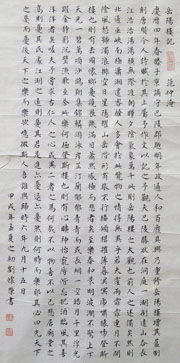 岳陽樓記 范仲淹
慶曆四年春滕子京謫守巴陵郡越明年政通人和百廢具興乃重修岳陽樓增其舊
制刻唐賢今人詩賦于其上屬予作文以記之予觀夫巴陵勝狀在洞庭一湖銜遠山吞長
江浩浩湯湯橫無際涯朝暉夕陰氣象萬千此則岳陽樓之大觀也前人之述備矣然則
北通巫峽南極瀟湘遷客騷人多會於此覽物之情得無異乎若夫霪雨霏霏連月不開
陰風怒號濁浪排空日星隱曜山岳潛形商旅不行檣傾楫摧薄暮冥冥虎嘯猿啼登斯
樓也則有去國懷鄉憂讒畏譏滿目蕭然感極而悲者矣至若春和景明波瀾不驚上下
天光一碧萬頃沙鷗翔集錦鱗游泳岸芷汀蘭郁郁青青而或長煙一空皓月千里浮光
躍金靜影沉璧漁歌互答此樂何極登斯樓也則有心曠神怡寵辱偕忘把酒臨風其喜
洋洋者矣嗟夫予嘗求古仁人之心或異二者之為何哉不以物喜不以己悲居廟堂之
高則憂其民處江湖之遠則憂其君是進亦憂退亦憂然則何時而樂耶其必曰先天下
之憂而憂後天下之樂而樂乎噫微斯人吾誰與歸時六年九月十五日
甲戌年孟夏之初劉書